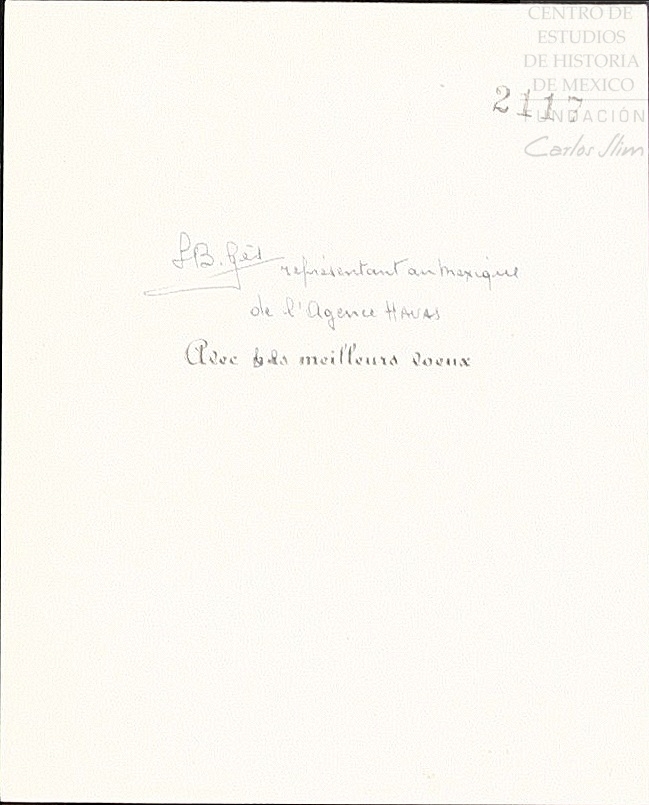 CENTRO DE
ESTUDIOS
DE HISTORIA
DE MEXICO
2117
FUNDACIÓN
Carlos Slim
représentant au Mexique
de l'Agence HAVAS
Avec meilleurs voeux